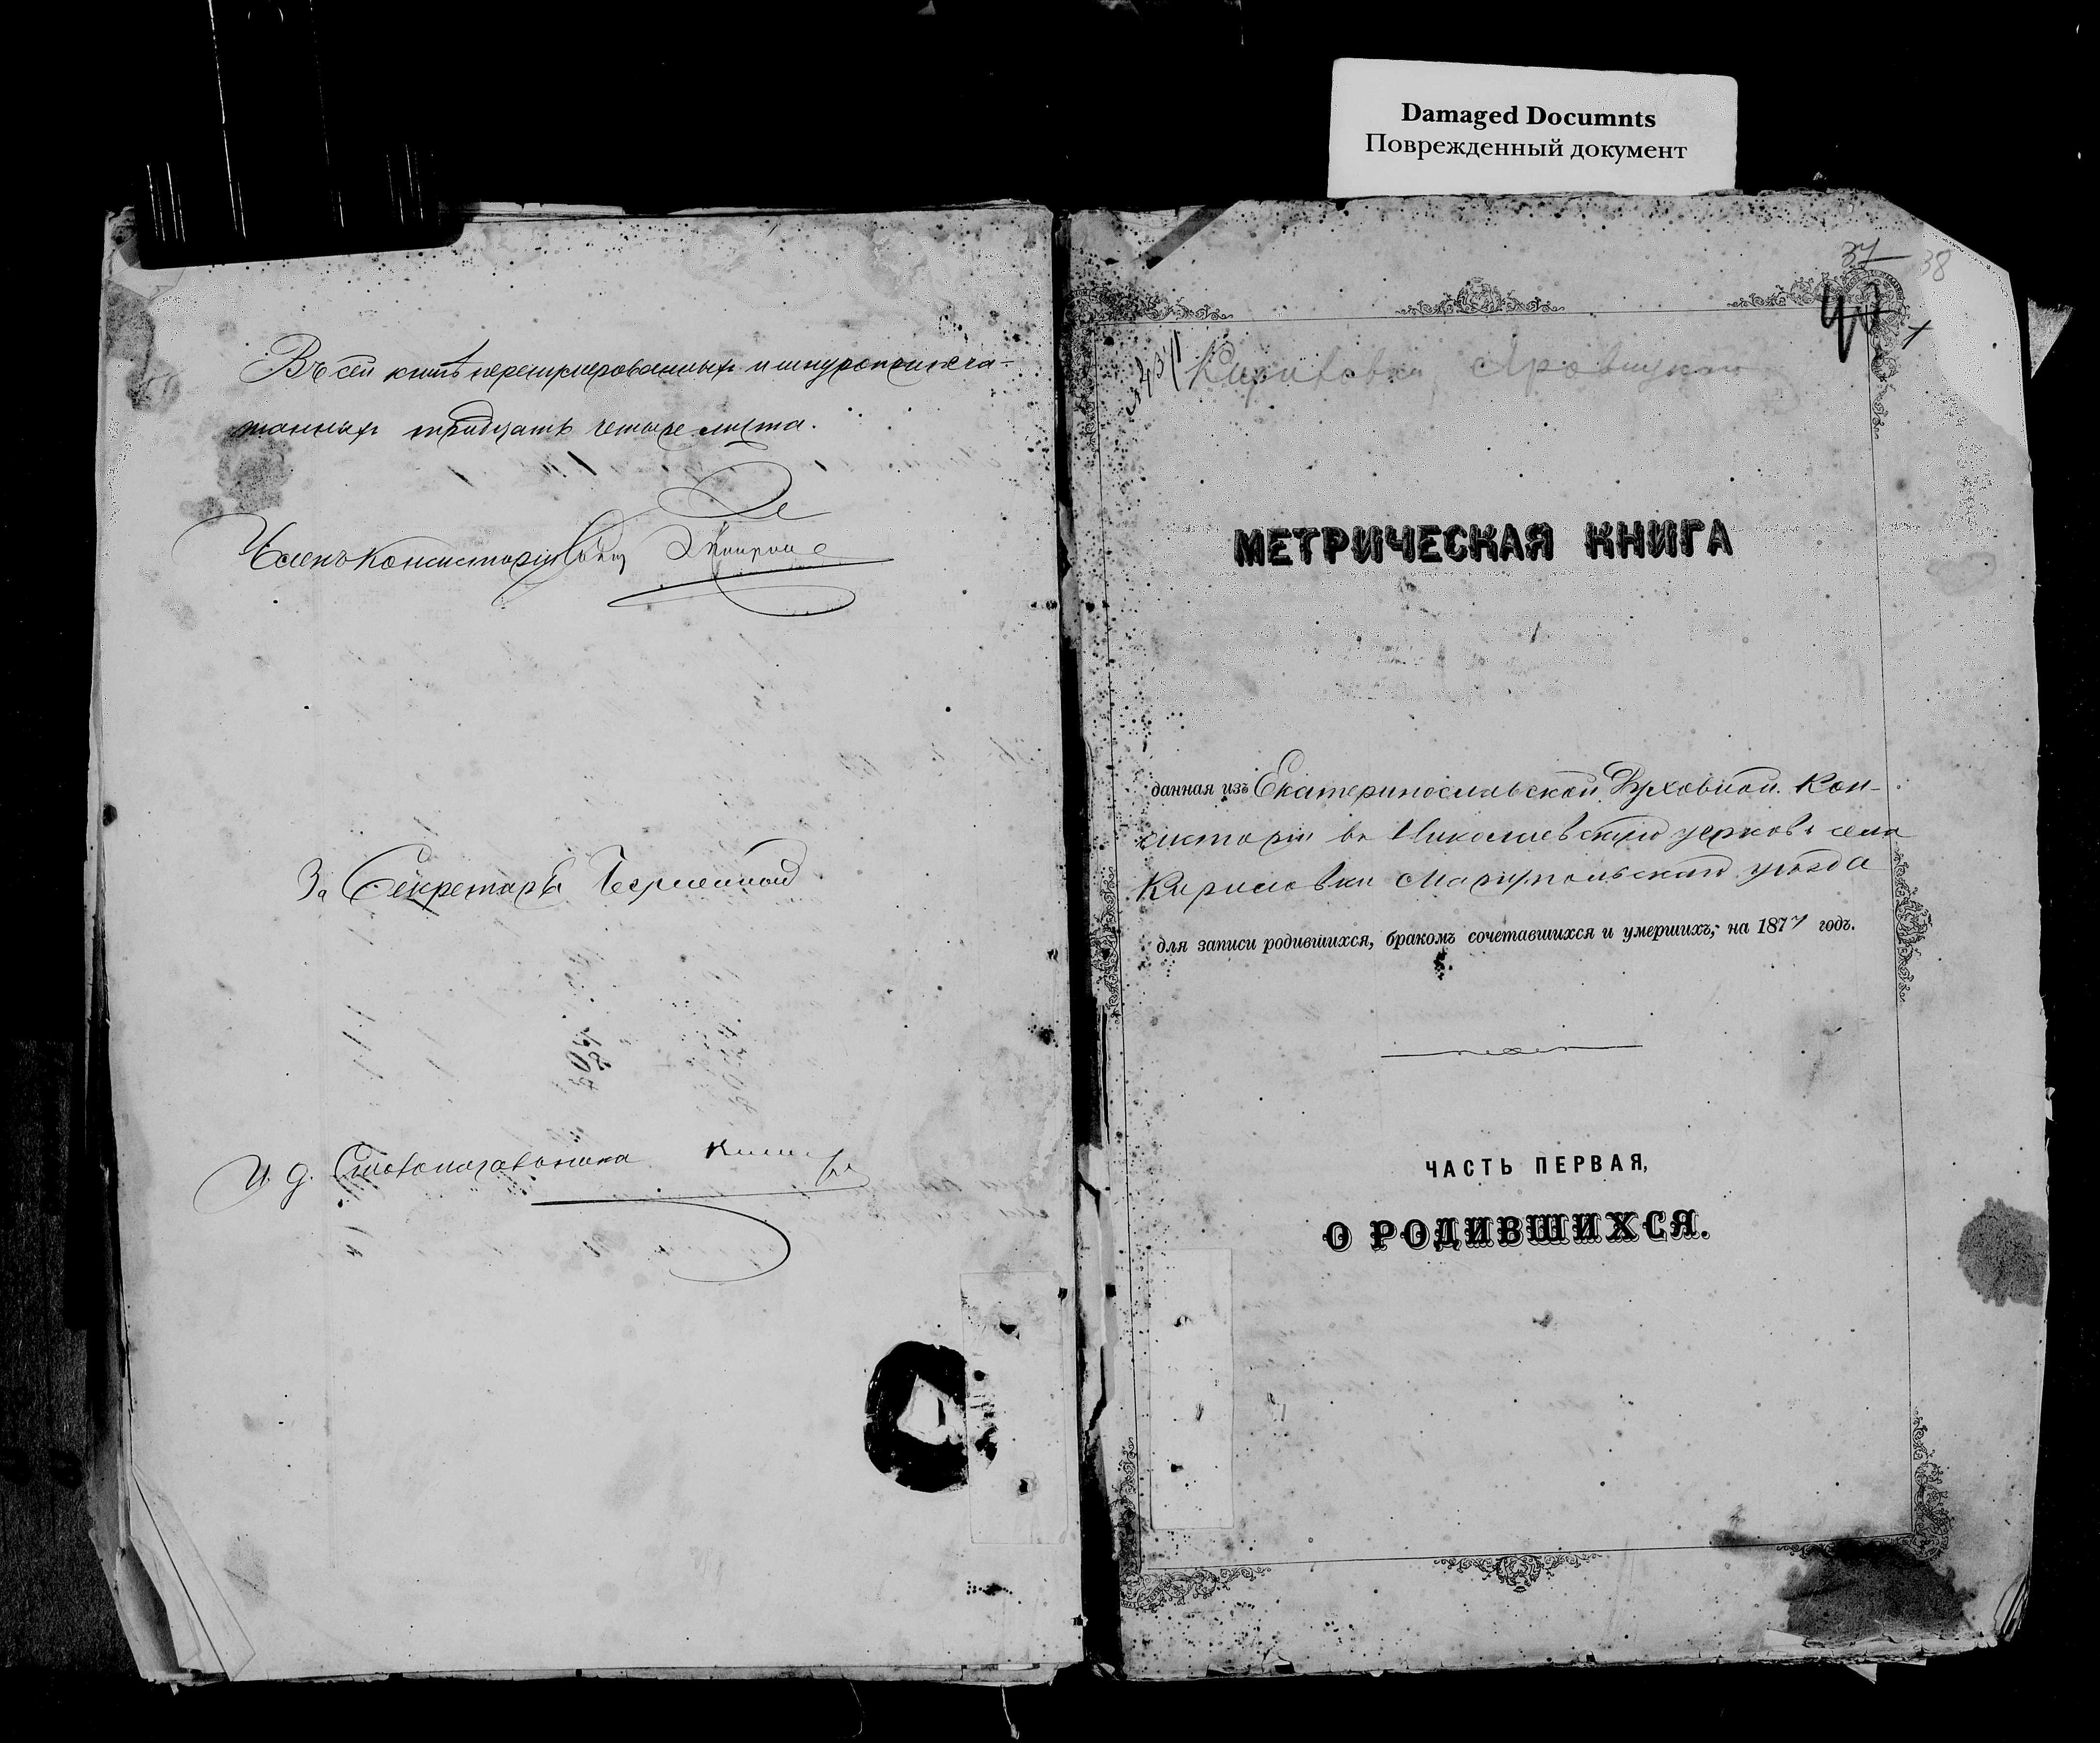 Damaged Documnts
Поврежденный документ
Въ сей книгѣ перенумерованныхъ и шнуроприпеча-
танныхъ тридцать четыре листа.
Членъ Консисторіи
За Секретаря
И. д. Столоначальника
37 38
1
МЕТРИЧЕСКАЯ КНИГА
данная изъ Екатеринославской Духовной Кон-
систоріи въ Николаевскую церковь села
Кириловки Маріупольскаго уѣзда
для записи родившихся, бракомъ сочетавшихся и умершихъ, на 1877 годъ.
ЧАСТЬ ПЕРВАЯ,
О РОДИВШИХСЯ.